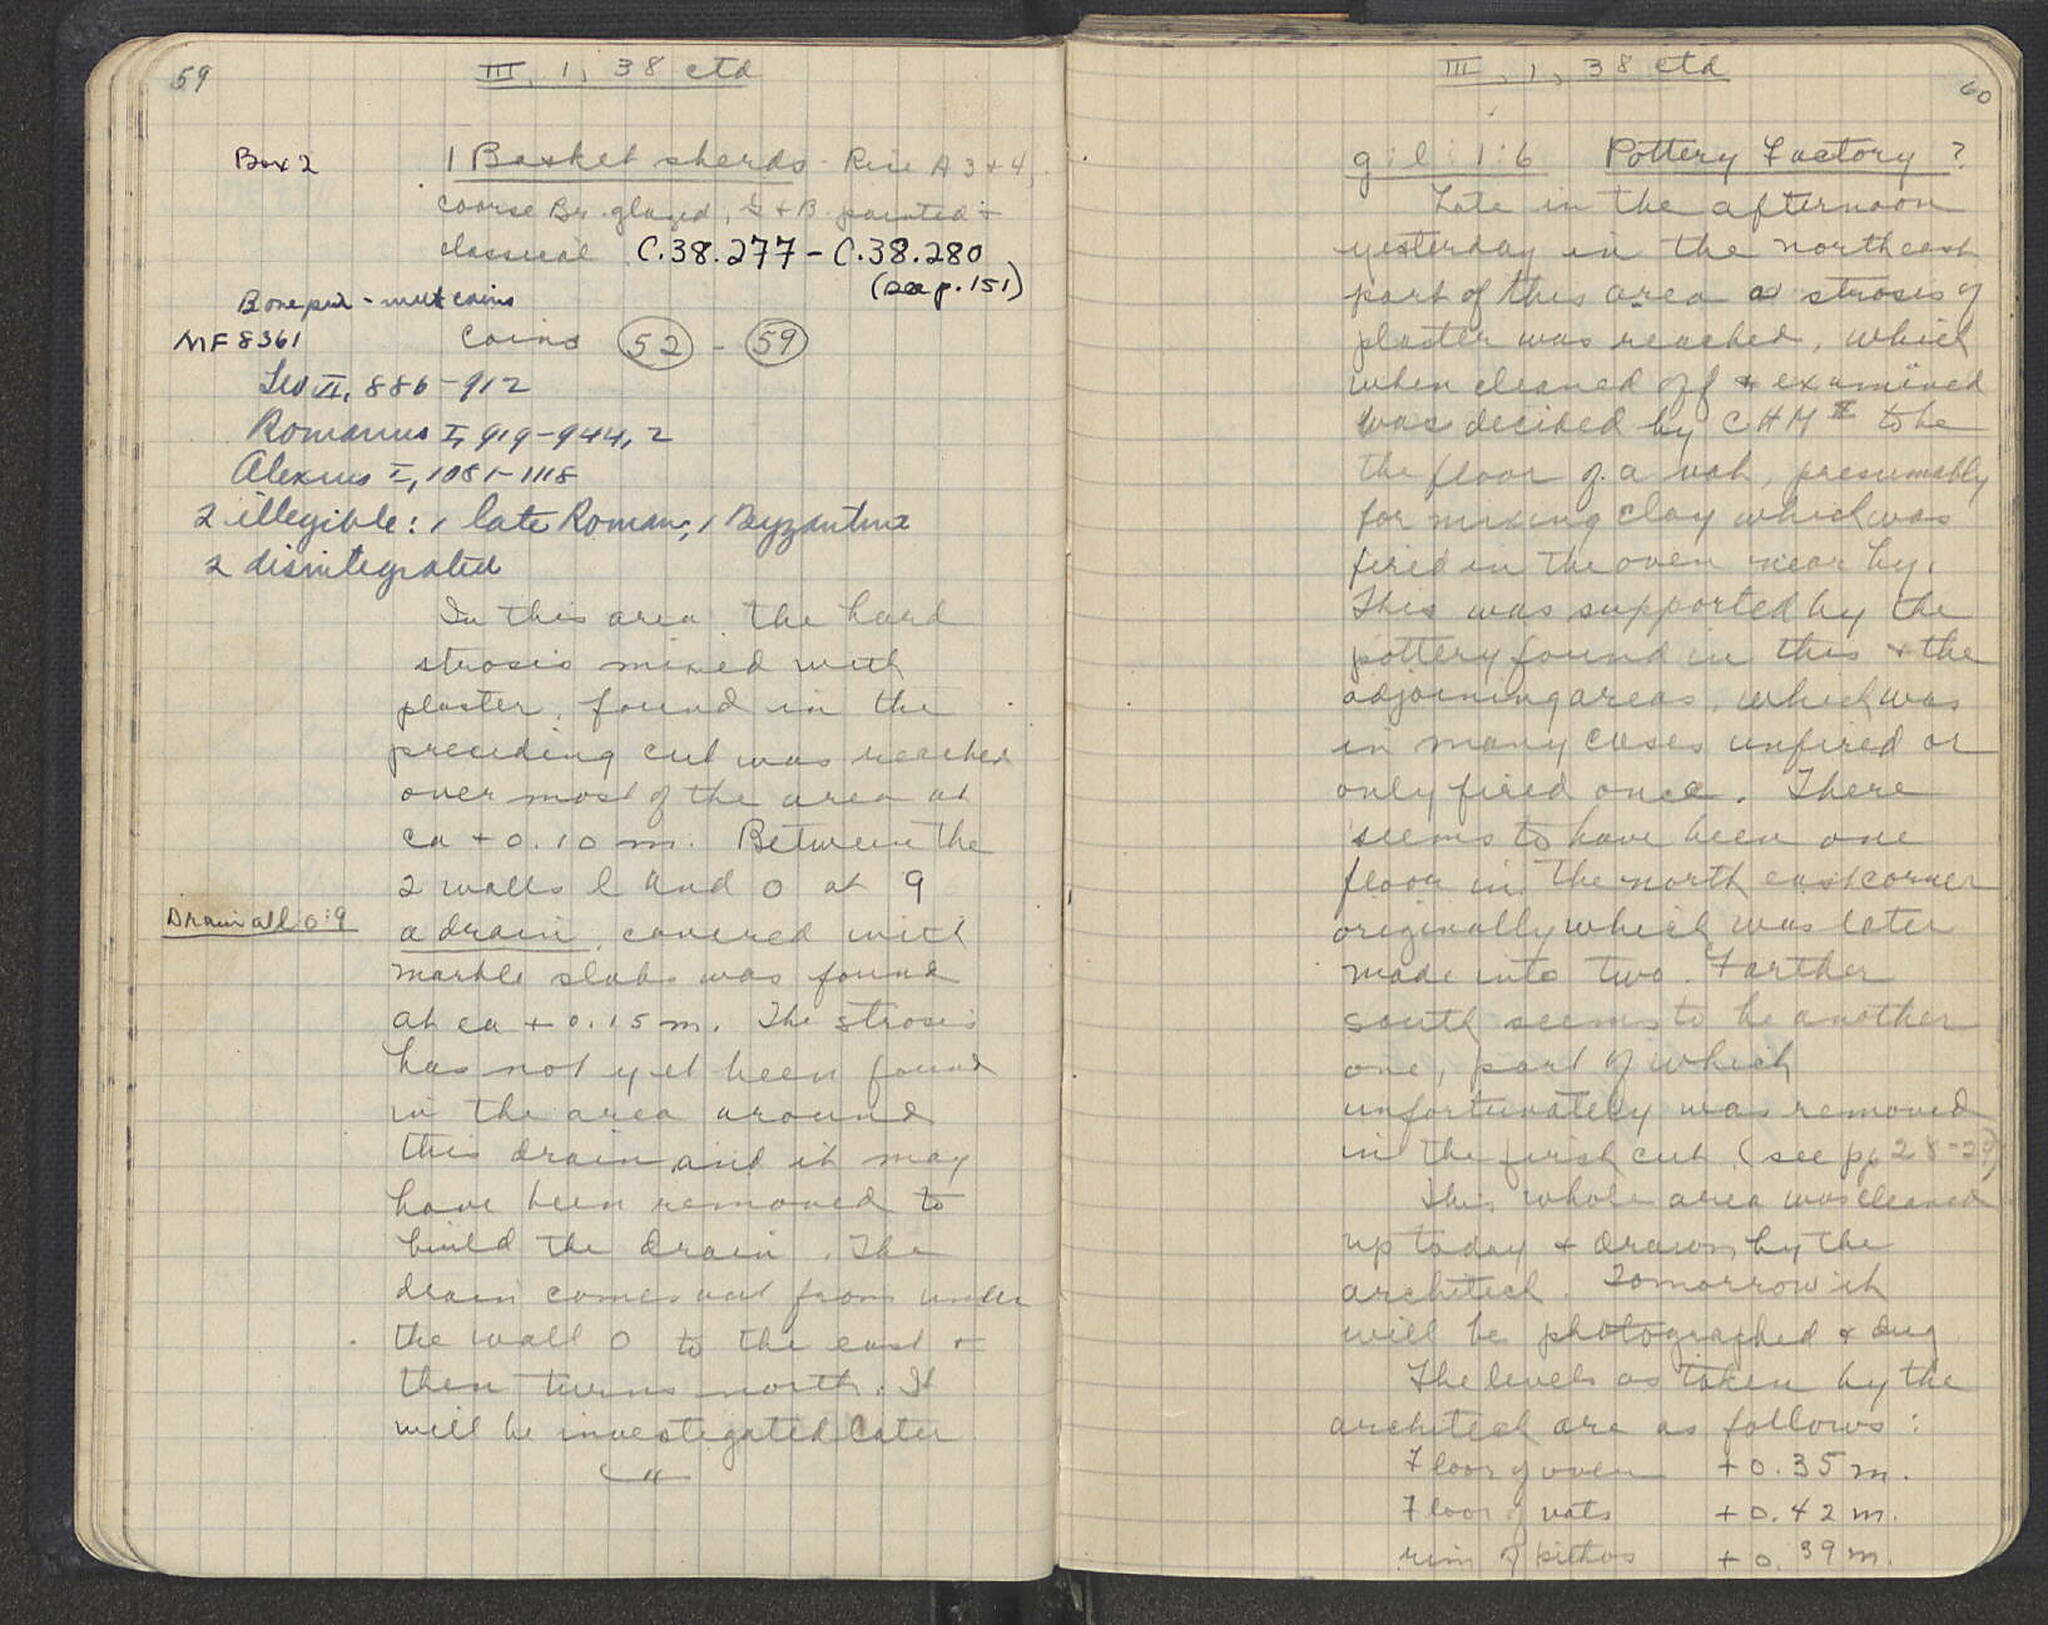 59
III, 1, 38 ctd
Box 2
1 Basket sherds - Rice A 3 + 4,
coarse Br. glazed, G + B painted +
classical C.38.277 - C.38.280
(see p. 151)
Bone pin - with coins
MF 8361
Coins 52 - 59
Leo VI, 886-912
Romanus I, 919-944, 2
Alexius I, 1081-1118
2 illegible: 1 late Roman, 1 Byzantine
2 disintegrated
In this area the hard
strosis mixed with
plaster, found in the
preceding cut was reached
over most of the area at
ca + 0.10 m. Between the
2 walls l and o at 9
Drain at l:o:9
a drain, covered with
marble slabs was found
at ca + 0.15 m. The strosis
has not yet been found
in the area around
this drain and it may
have been removed to
build the drain. The
drain comes out from under
the wall o to the east +
then turns north. It
will be investigated later
III, 1, 38 ctd
60
g:l:1:6 Pottery Factory ?
Late in the afternoon
yesterday in the northeast
part of this area a strosis of
plaster was reached, which
when cleaned off & examined
was decided by CHM III to be
the floor of a vat, presumably
for mixing clay which was
fired in the oven near by.
This was supported by the
pottery found in this & the
adjoining areas, which was
in many cases unfired or
only fired once. There
seems to have been one
floor in the north east corner
originally which was later
made into two. Farther
south seems to be another
one, part of which
unfortunately was removed
in the first cut (see pp 28-29)
This whole area was cleaned
up today & drawn by the
architect. Tomorrow it
will be photographed & dug
The levels as taken by the
architect are as follows:
Floor of oven + 0.35 m.
Floor of vats + 0.42 m.
rim of pithos + 0.39 m.